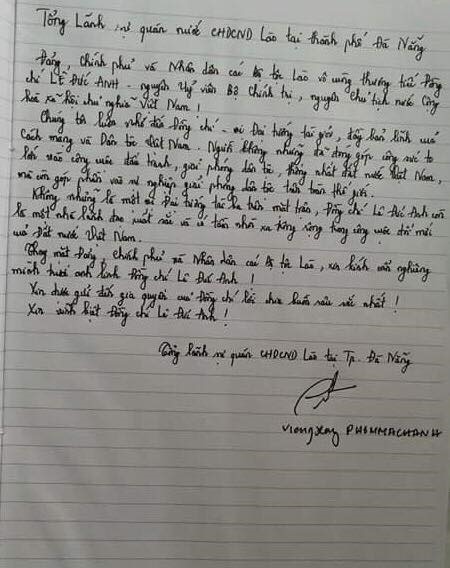 Tổng Lãnh sự quán nước CHDCND Lào tại thành phố Đà Nẵng
Đảng, Chính phủ và Nhân dân các Bộ tộc Lào vô cùng thương tiếc Đồng
chí LÊ ĐỨC ANH - nguyên Uỷ viên Bộ Chính trị, nguyên Chủ tịch nước Cộng
hoà xã hội chủ nghĩa Việt Nam !
Chúng tôi luôn nhớ đến Đồng chí - vị Đại tướng tài giỏi, đầy bản lĩnh của
Cách mạng và Dân tộc Việt Nam. Người không những đã đóng góp công sức to
lớn vào công cuộc đấu tranh, giải phóng dân tộc, thống nhất đất nước Việt Nam,
mà còn góp phần vào sự nghiệp giải phóng dân tộc trên toàn thế giới.
Không những là một vị Đại tướng tài ba trên mặt trận, Đồng chí Lê Đức Anh còn
là một nhà lãnh đạo xuất sắc và có tầm nhìn xa trông rộng trong công cuộc đổi mới
của Đất nước Việt Nam.
Thay mặt Đảng, Chính phủ và Nhân dân các Bộ tộc Lào, xin kính cẩn nghiêng
mình trước anh linh Đồng chí Lê Đức Anh !
Xin được gửi đến gia quyến của Đồng chí lời chia buồn sâu sắc nhất !
Xin vĩnh biệt Đồng chí Lê Đức Anh !
Tổng lãnh sự quán CHDCND Lào tại Tp. Đà Nẵng
Viengxay PHOMMACHANH